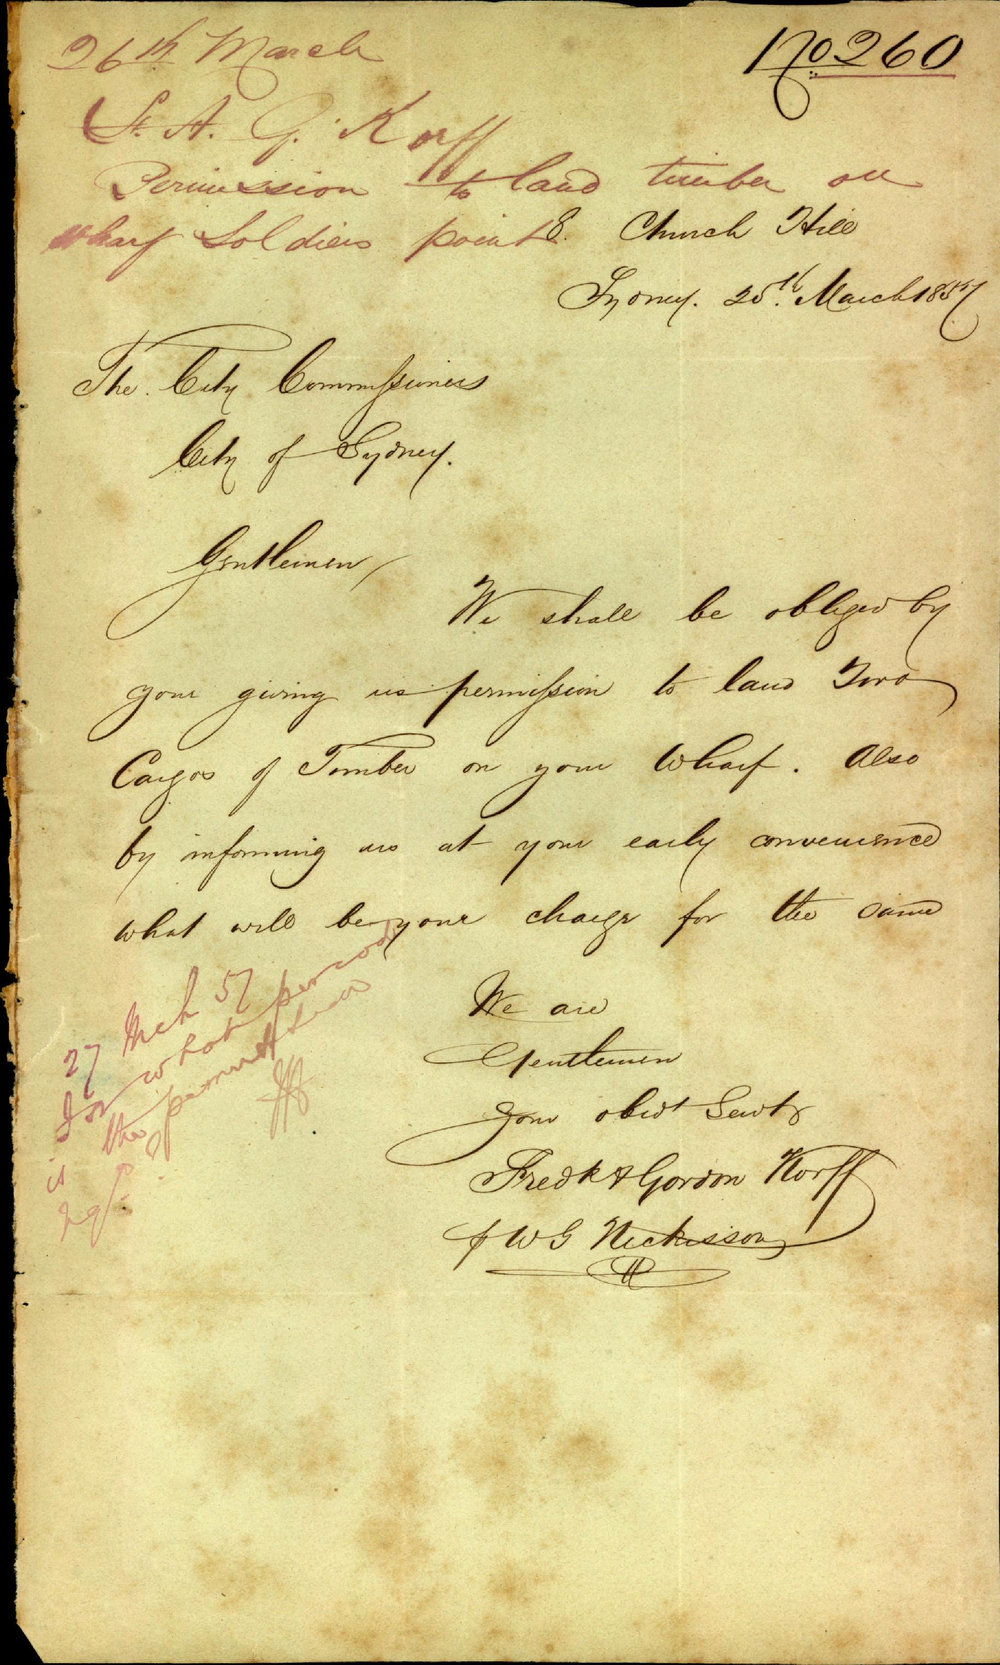 26th March
No 260
F. A. G. Korff
Permission to land timber on
wharf Soldiers point
8. Church Hill
Sydney. 25th. March 1857
The City Commissioners
City of Sydney.
Gentlemen,
We shall be obliged by
your giving us permission to land Two
Cargos of Timber on your Wharf. Also
by informing us at your early convenience
what will be your charge for the same
We are
Gentlemen
Your obedt Servts
Fredk A Gordon Korff
J W G Nickisson
27 Mch 57
For what period
is the permit